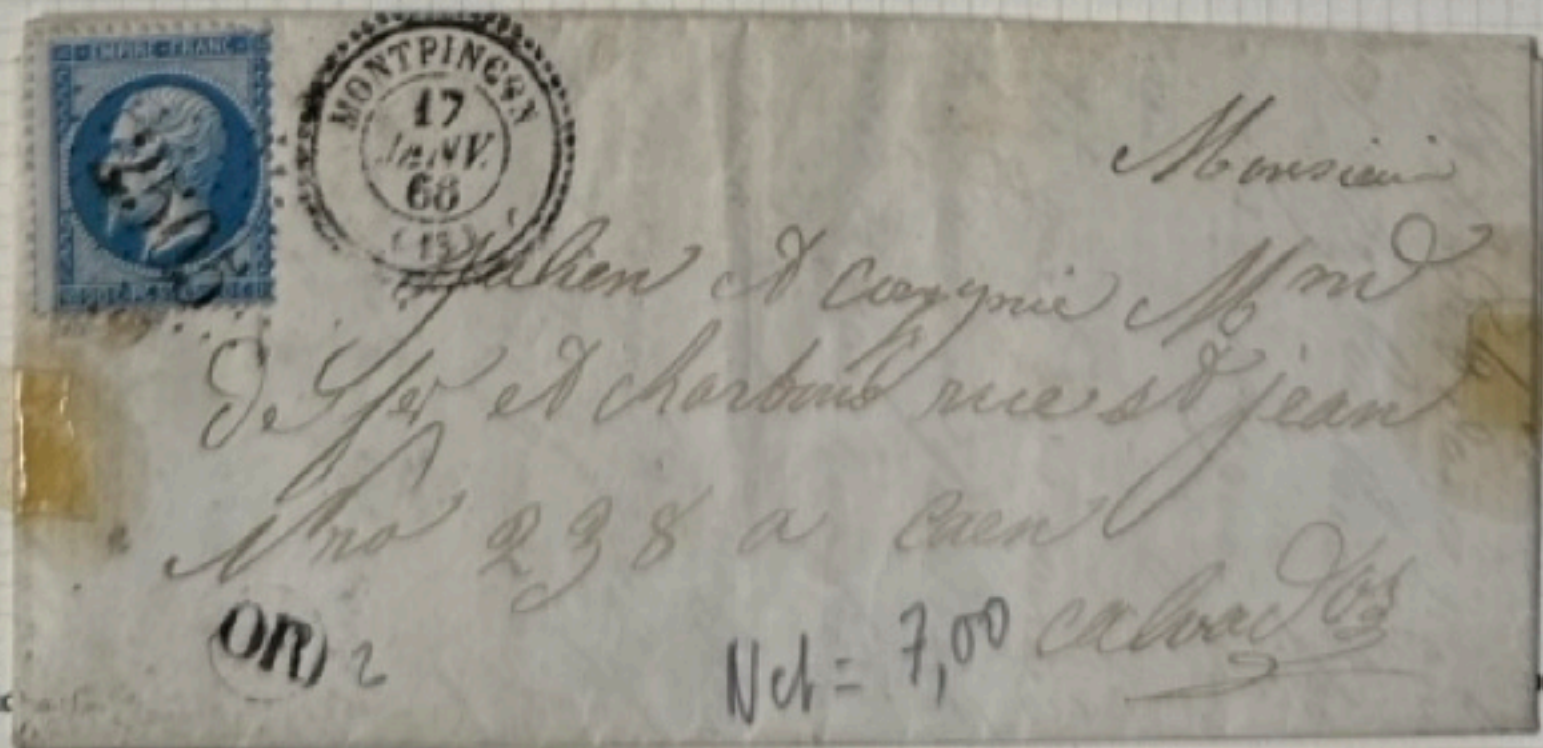 EMPIRE FRANC
MONTPINÇON
17
JANV.
68
(13)
Monsieur
Julien et compagnie Md
de fer et charbons rue st jean
Nro 238 a Caen
calvados
OR 2
Net = 7,00